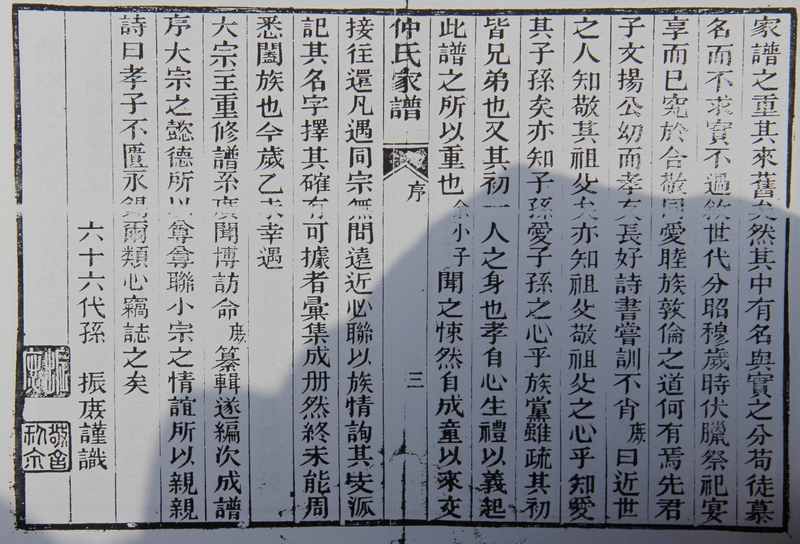 家譜之重其來舊矣然其中有名與實之分苟徒慕
名而不求實不過敘世代分昭穆歲時伏臘祭祀宴
享而已究於合敬同愛睦族敦倫之道何有焉先君
子文揚公幼而孝友長好詩書嘗訓不肖庹曰近世
之人知敬其祖父矣亦知祖父敬祖父之心乎知愛
其子孫矣亦知子孫愛子孫之心乎族黨雖疏其初
皆兄弟也又其初一人之身也孝自心生禮以義起
此譜之所以重也余小子聞之悚然自成童以來交
仲氏家譜 序 三
接往還凡遇同宗無問遠近必聯以族情詢其支派
記其名字擇其確有可據者彙集成册然終未能周
悉闔族也今歲乙未幸遇
大宗主重修譜系廣聞博訪命庹纂輯遂編次成譜
序大宗之懿德所以尊尊聯小宗之情誼所以親親
詩曰孝子不匱永錫爾類心竊誌之矣
六十六代孫 振庹謹識